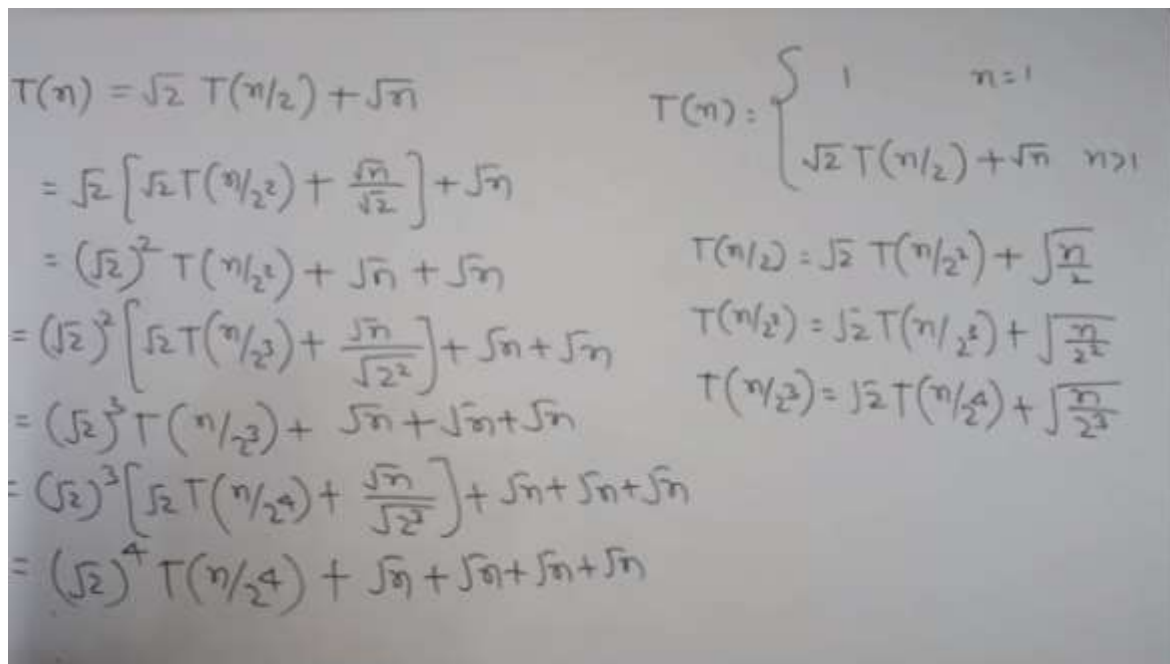 T(n) = √2 T(n/2) + √n
= √2 [√2 T(n/2²) + √n/√2] + √n
= (√2)² T(n/2²) + √n + √n
= (√2)² [√2 T(n/2³) + √n/√2²] + √n + √n
= (√2)³ T(n/2³) + √n + √n + √n
= (√2)³ [√2 T(n/2⁴) + √n/√2³] + √n + √n + √n
= (√2)⁴ T(n/2⁴) + √n + √n + √n + √n
T(n) = { 1 n=1
√2 T(n/2) + √n n>1
T(n/2) = √2 T(n/2²) + √(n/2)
T(n/2²) = √2 T(n/2³) + √(n/2²)
T(n/2³) = √2 T(n/2⁴) + √(n/2³)